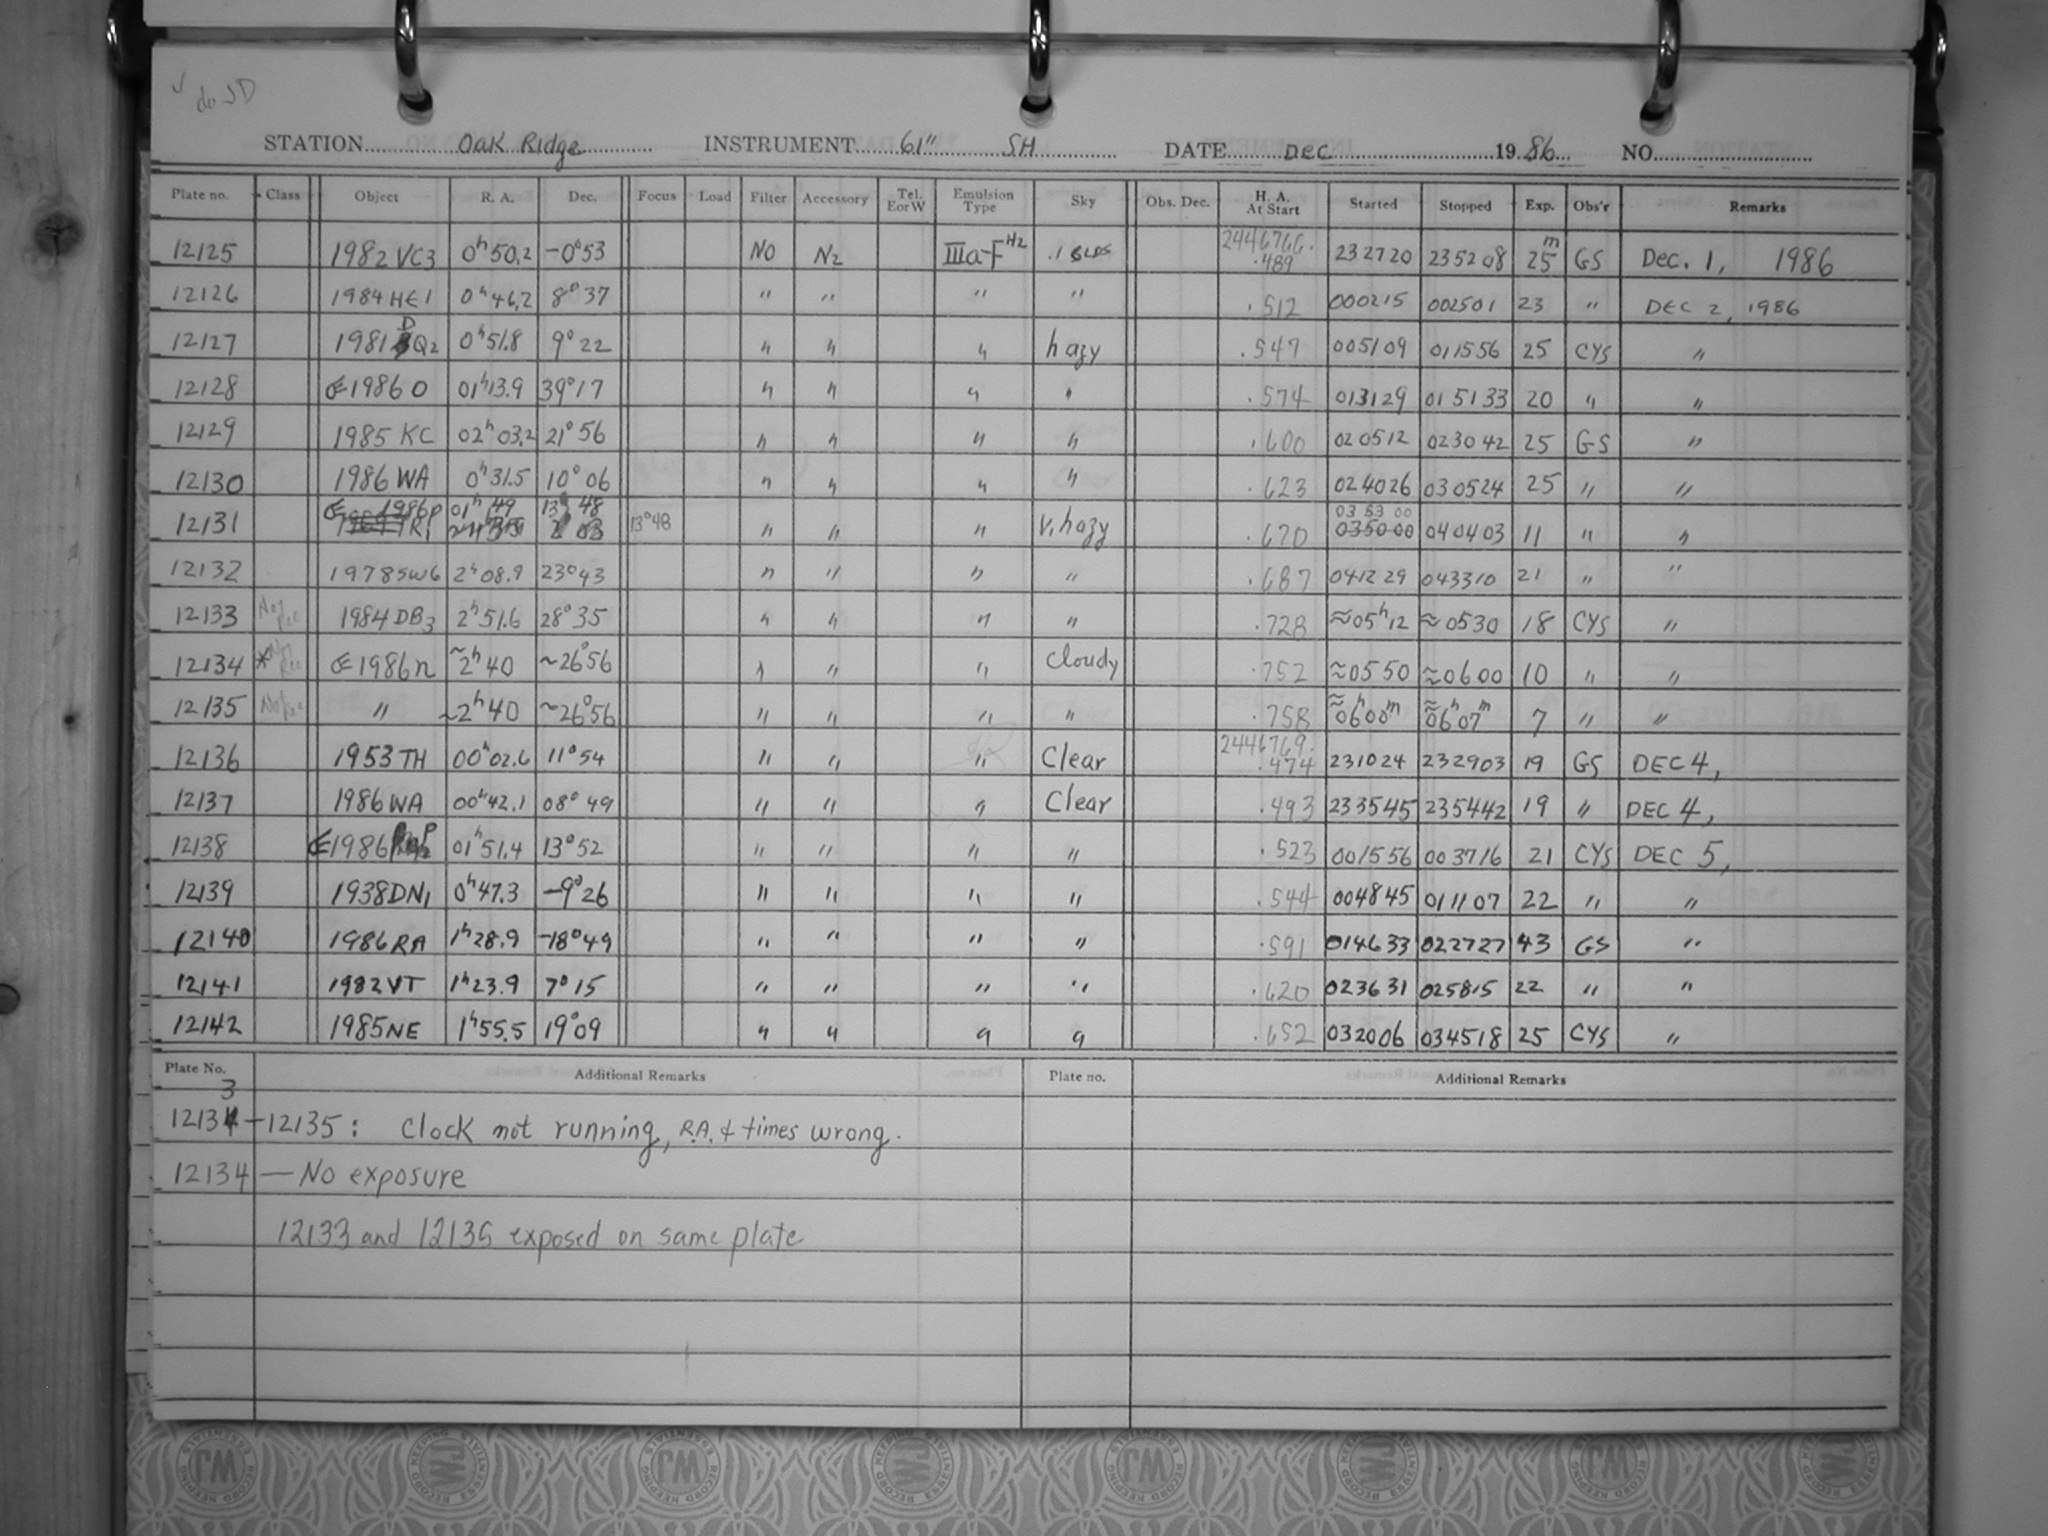 ✓ do JD
STATION Oak Ridge INSTRUMENT 61" SH DATE Dec 1986 NO.
Plate no. Class Object R. A. Dec. Focus Load Filter Accessory Tel. E or W Emulsion Type Sky Obs. Dec. H. A. At Start Started Stopped Exp. Obs'r Remarks
12125 1982 VC3 0h50.2 -0°53 NO N2 IIIa-F H2 2446766. .489 232720 235208 25m GS Dec. 1, 1986
12126 1984 HE1 0h46.2 8°37 " " " " .512 000215 002501 23 " DEC 2, 1986
12127 1981 DQ2 0h51.8 9°22 " " " hazy .547 005109 011556 25 CYS "
12128 1986 O 01h13.9 39°17 " " " " .574 013129 015133 20 " "
12129 1985 KC 02h03.2 21°56 " " " " .600 020512 023042 25 GS "
12130 1986 WA 0h31.5 10°06 " " " " .623 024026 030524 25 " "
12131 1986p 01h49 13°48 13°48 " " " v. hazy .670 03 53 00 035000 040403 11 " "
12132 1978 SW6 2h08.9 23°43 " " " " .687 041229 043310 21 " "
12133 Not rec 1984 DB3 2h51.6 28°35 " " " " .728 ≈05h12 ≈0530 18 CYS "
12134 * Not rec 1986n ~2h40 ~26°56 " " " Cloudy .752 ≈0550 ≈0600 10 " "
12135 Not rec " ~2h40 ~26°56 " " " " .758 ≈06h00m ≈06h07m 7 " "
12136 1953 TH 00h02.6 11°54 " " " Clear 2446769. .474 231024 232903 19 GS DEC 4,
12137 1986 WA 00h42.1 08°49 " " " Clear .493 233545 235442 19 " DEC 4,
12138 1986 P 01h51.4 13°52 " " " " .523 001556 003716 21 CYS DEC 5,
12139 1938 DN1 0h47.3 -9°26 " " " " .544 004845 011107 22 " "
12140 1986 RA 1h28.9 -18°49 " " " " .591 014633 022727 43 GS "
12141 1982 VT 1h23.9 7°15 " " " " .620 023631 025815 22 " "
12142 1985 NE 1h55.5 19°09 " " " " .652 032006 034518 25 CYS "
Plate No. Additional Remarks Plate no. Additional Remarks
12133-12135: Clock not running, R.A. & times wrong.
12134 — No exposure
12133 and 12135 exposed on same plate